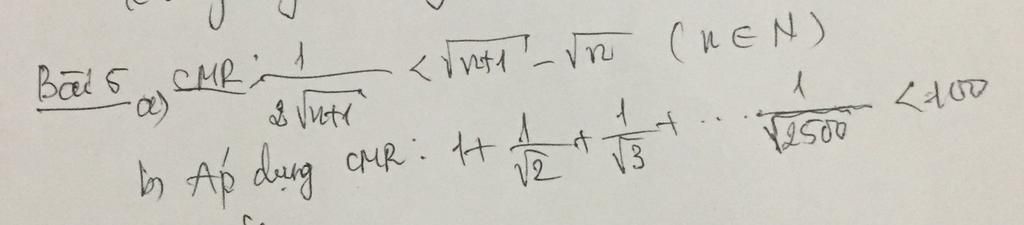 Bài 5 a) CMR: 1/(2√(n+1)) < √(n+1) - √n (n ∈ N)
b) Áp dụng CMR: 1 + 1/√2 + 1/√3 + ... 1/√2500 < 100